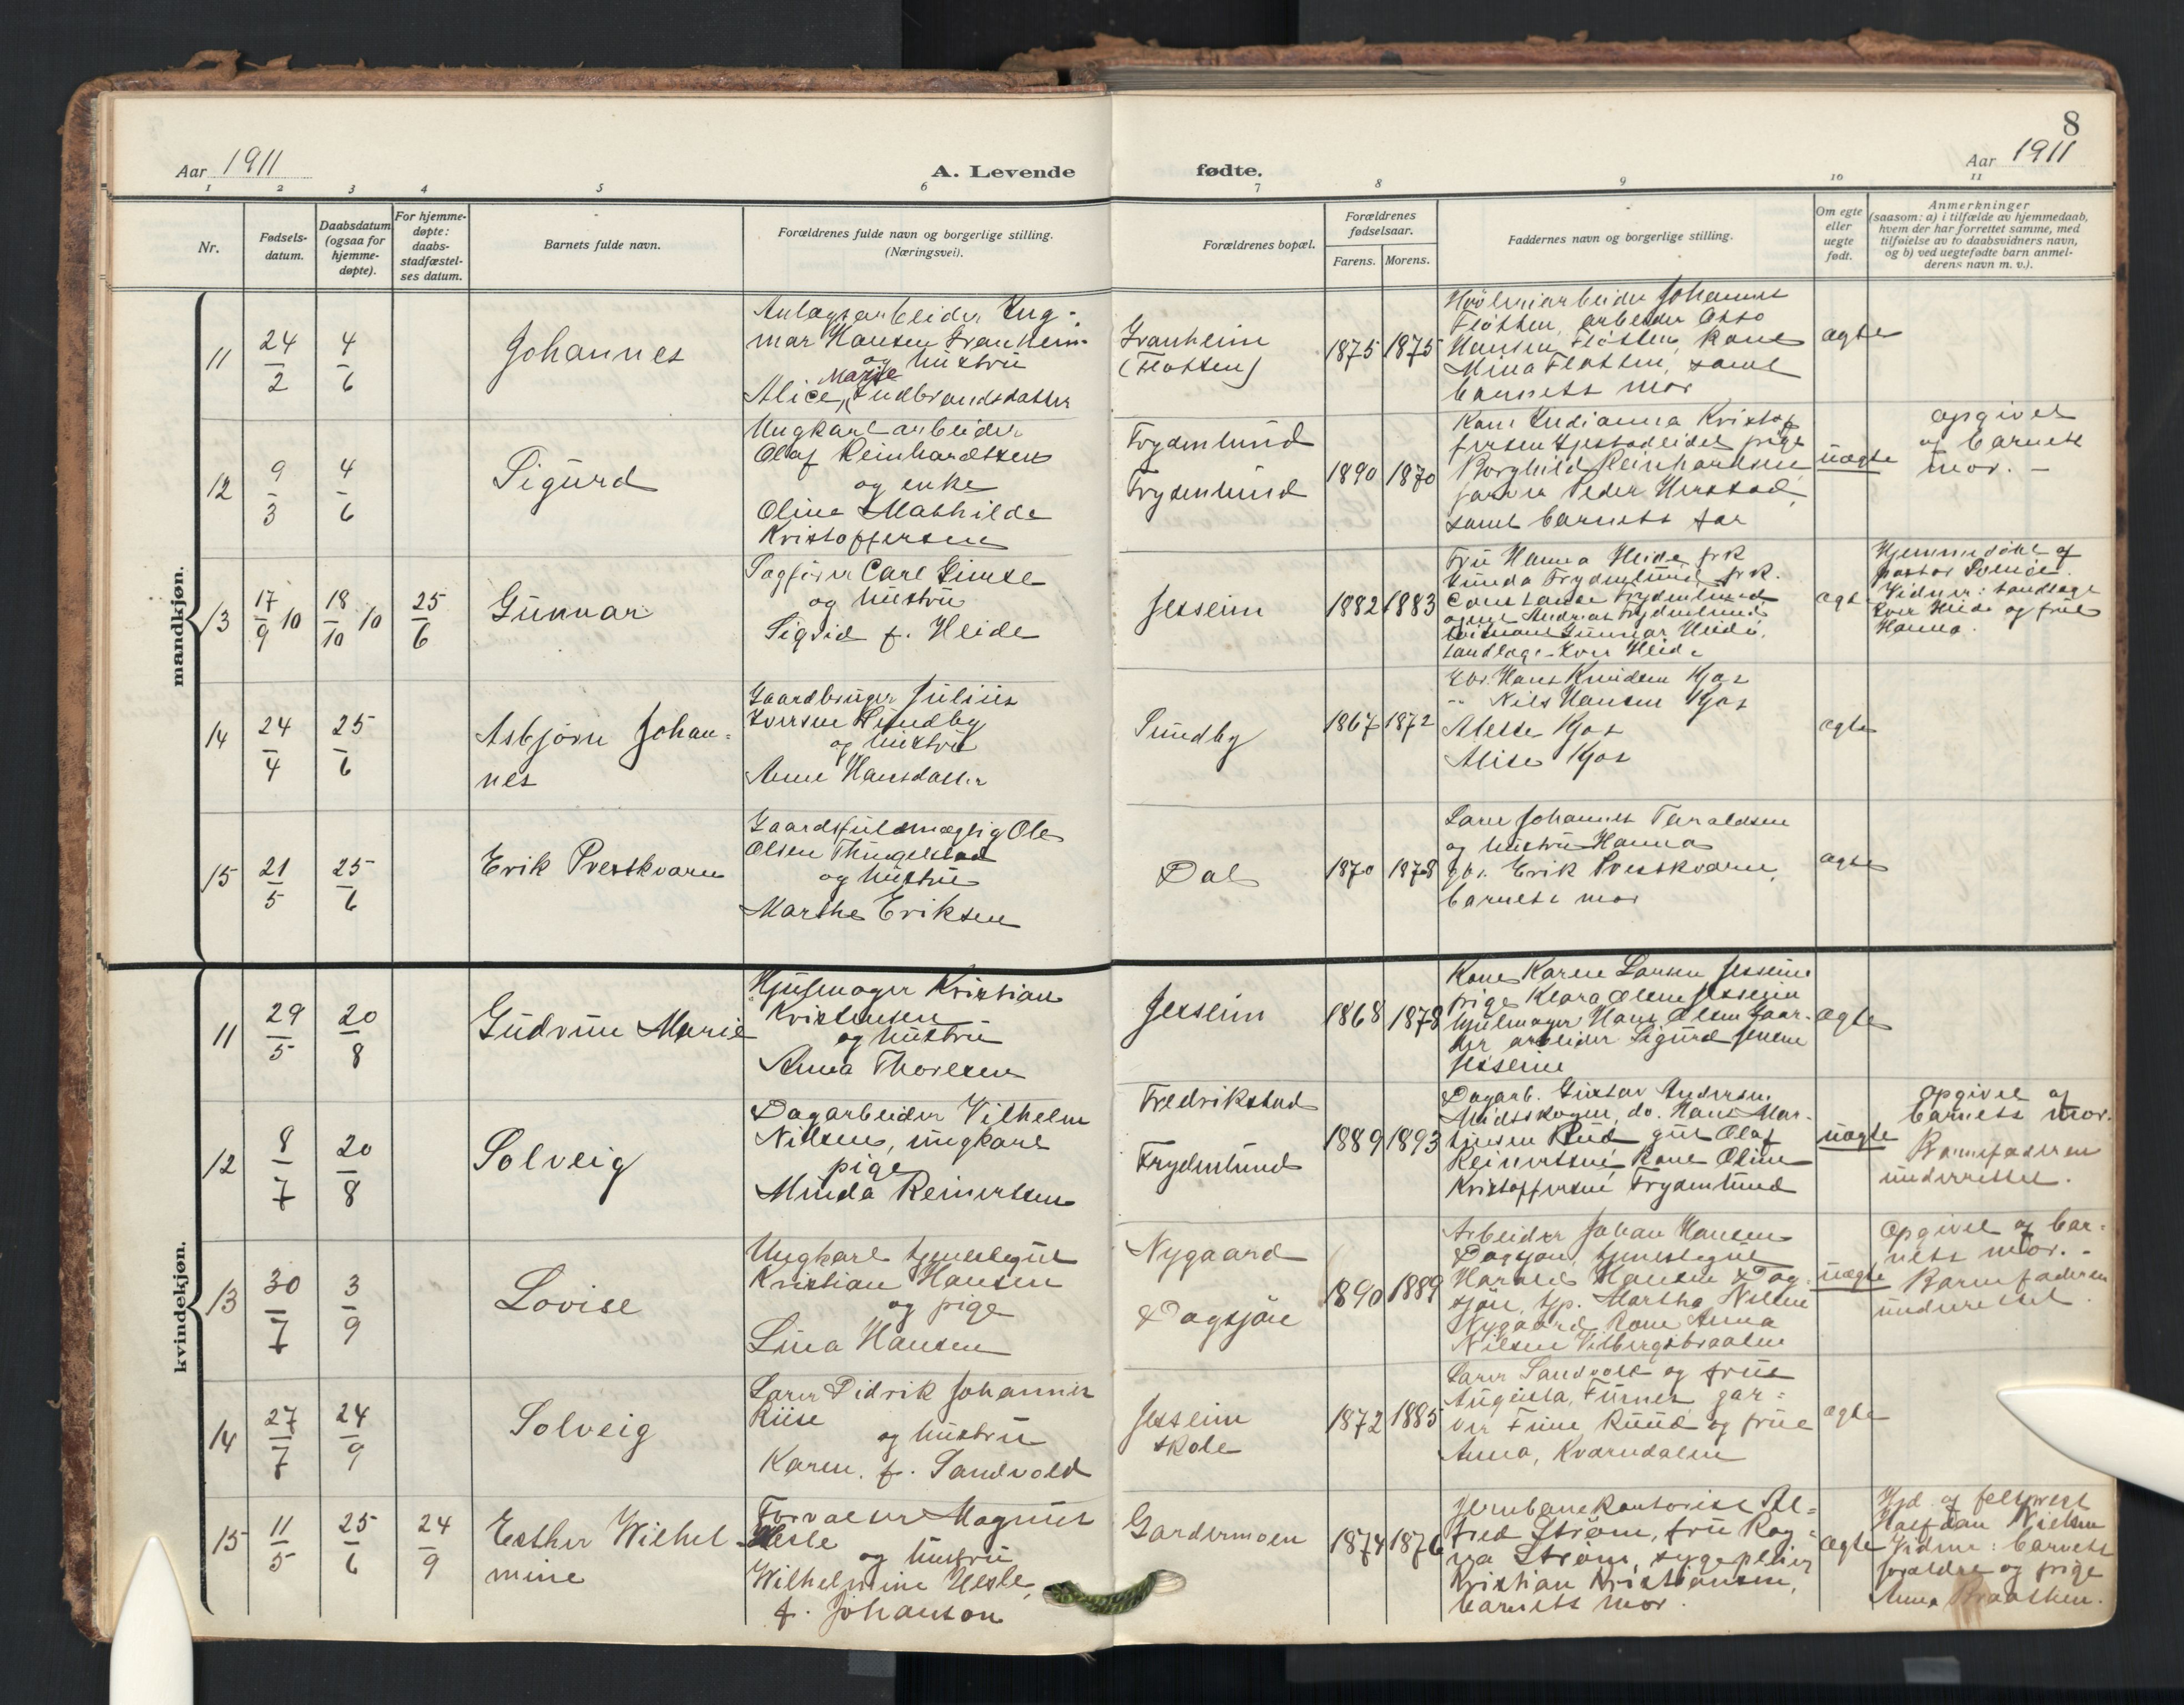 8
Aar 1911
A. Levende
fødte.
Aar 1911
1 2 3 4 5 6 7 8 9 10 11
Nr.
Fødsels-
datum.
Daabsdatum
(ogsaa for
hjemme-
døpte).
For hjemme-
døpte:
daabs-
stadfæstel-
ses datum.
Barnets fulde navn.
Forældrenes fulde navn og borgerlige stilling.
(Næringsvei).
Forældrenes bopæl.
Forældrenes
fødselsaar.
Farens. Morens.
Faddernes navn og borgerlige stilling.
Om egte
eller
uegte
født.
Anmerkninger
(saasom: a) i tilfælde av hjemmedaab,
hvem der har forrettet samme, med
tilføielse av to daabsvidners navn,
og b) ved uegtefødte barn anmel-
derens navn m. v.).
mandkjøn.
11
24/2
4/6
Johannes
Anlægsarbeider Ing-
mar Hansen Granheim
og hustru
Marie
Alice Gudbrandsdatter
Granheim
(Fløtten)
1875 1875
Johannes
Fløtten, arbeider Otto
Hansen Fløtten, kone
Mina Fløtten, samt
barnets mor
ægte
12
9/3
4/6
Sigurd
Ungkarl arbeider
Olaf Reinhardtsen
og enke
Oline Mathilde
Kristoffersen
Frydenlund
Frydenlund
1890 1870
Kone Indianna Kristof
fersen pige
Borghild Reinhardtsen
Peder
samt barnets far
uægte
Opgivet
af barnets
mor. -
13
17/9 10
18/10 10
25/6
Gunnar
Sagfører Carl Gimse
og hustru
Sigrid f. Heide
Jesseim
1882 1883
Fru Hanna Heide, frk
Gunda Frydenlund, frk.
Constance Frydenlund
Andreas Frydenlund
Gunnar Heide,
tandlæge Iver Heide
ægte
Hjemmedøbt af
pastor
Vidner: tandlæge
Iver Heide og frue
Hanna.
14
24/4
25/6
Asbjørn Johan-
nes
Gaardbruger Julius
Iversen Sundby
og hustru
Anne Hansdatter
Sundby
1867 1872
Gbr. Hans Knudsen Kjos
-"- Nils Hansen Kjos
Alette Kjos
Alise Kjos
ægte
15
21/5
25/6
Erik Prestkvarn
Gaardsfuldmægtig Ole
Olsen Thingelstad
og hustru
Marthe Eriksen
Dal
1870 1878
Lærer Johannes Taraldsen
og hustru Hanna
gbr. Erik Prestkværn,
barnets mor
ægte
kvindekjøn.
11
29/5
20/8
Gudrun Marie
Hjulmager Kristian
Kristensen
og hustru
Anna Thoresen
Jesseim
1868 1878
Kone Karen Larsen Jesseim
pige Klara Olsen Jesseim
hjulmager Hans Olsen Gaar-
der arbeider Sigurd Jensen
Jesseim
ægte
12
8/7
20/8
Solveig
Dagarbeider Vilhelm
Nilsen, ungkarl
pige
Minda Reinertsen
Fredrikstad
Frydenlund
1889 1893
Dagarb. Gustav Andersen
Midtskogen, do. Hans Mar-
tinsen Rud gut Olaf
Reinertsen, Kone Oline
Kristoffersen Frydenlund
uægte
Opgivet af
barnets mor.
Barnefaderen
underrettet.
13
30/7
3/9
Lovise
Ungkarl tjenestegut
Kristian Hansen
og pige
Lina Hansen
Nygaard
Dagsjøn
1890 1889
Arbeider Johan Hansen
Dagsjøn, tjenestegut
Harald Hansen Dag-
sjøn, tjp. Martha Nilsen
Nygaard, Kone Anna
Nilsen Vilbergsbraaten
uægte
Opgivet af bar-
nets mor. -
Barnefaderen
underrettet.
14
27/7
24/9
Solveig
Lærer Didrik Johannes
Riise
og hustru
Karen, f. Sandvold
Jesseim
skole
1872 1885
Lærer Sandvold og frue
Augusta, Furnes, gar-
ver Fine Ruud og frue
Anna, Kværndalen
ægte
15
11/5
25/6
24/9
Esther Wilhel-
mine
Forvalter Magnus
Hesle
og hustru
Wilhelmine Hesle,
f. Johanson
Gardermoen
1874 1876
Jernbanekontorist Al-
fred Strøm, fru Rag-
na Strøm, sygepleier
Kristian Kristiansen,
barnets mor.
ægte
Hjd. af feltprest
Halfdan Nielsen
Vidner: barnets
forældre og pige
Anna Braathen.